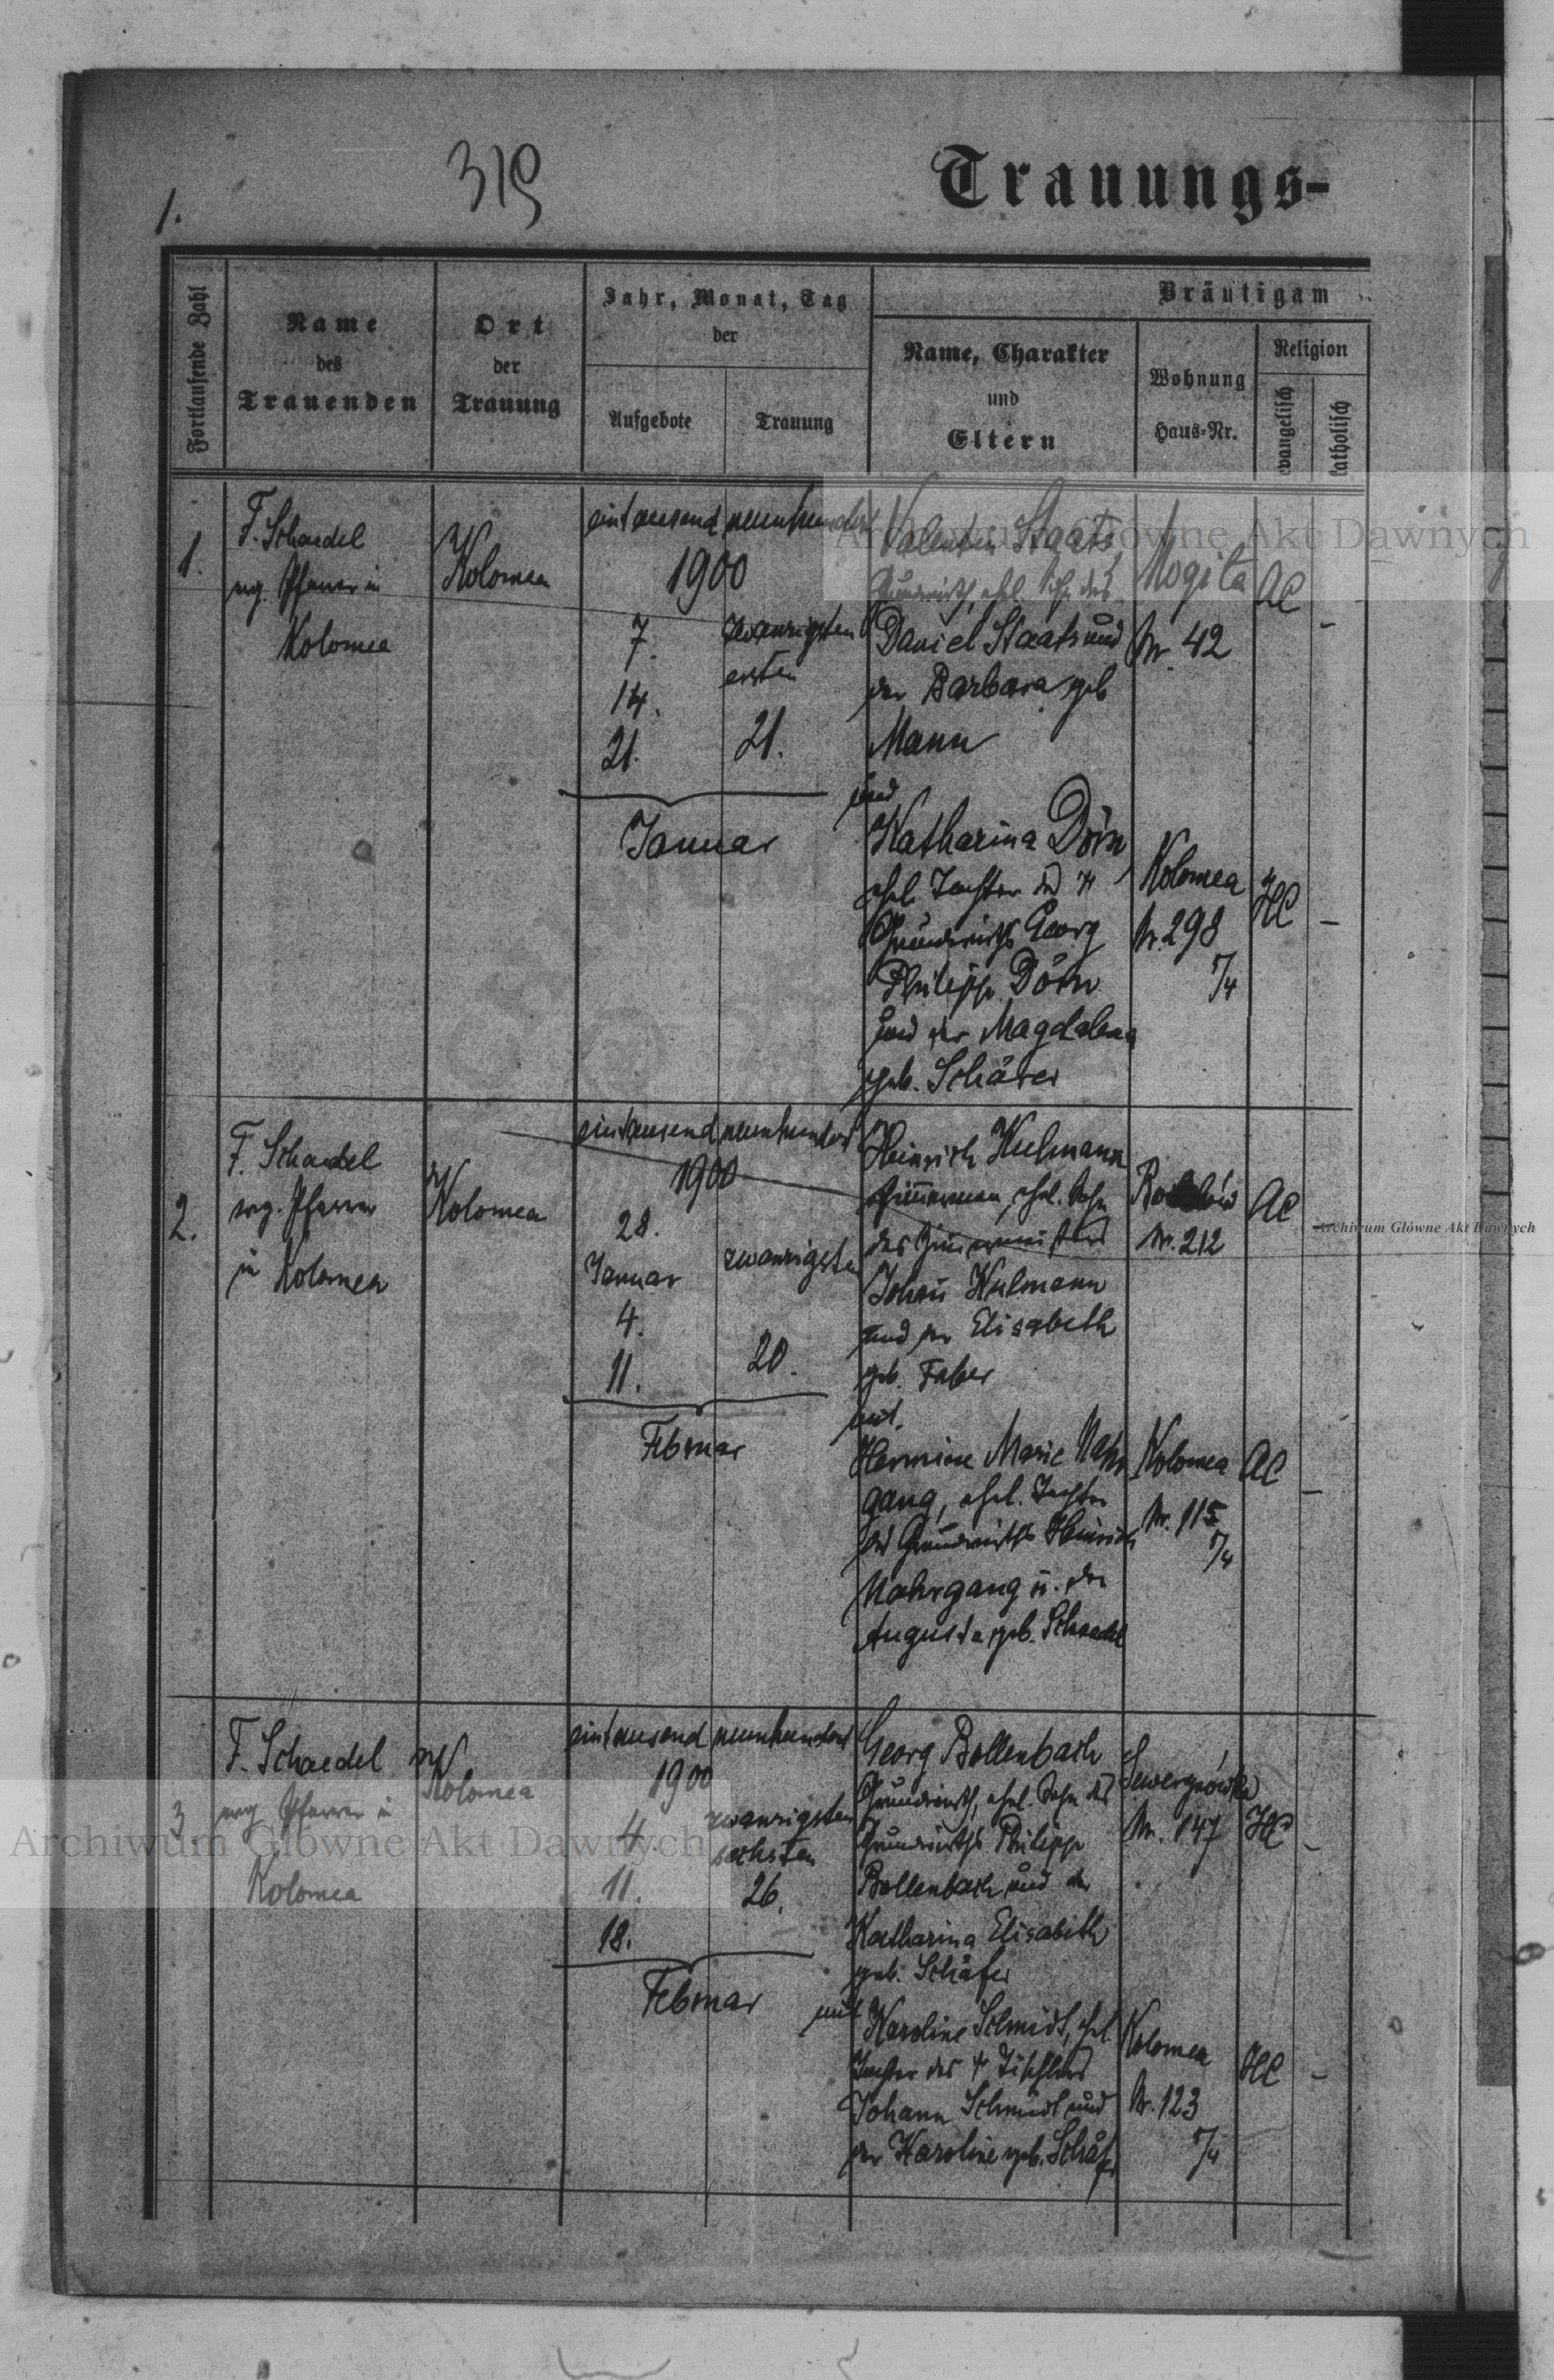 1.
319
Trauungs-
Fortlaufende Zahl
Name
des
Trauenden
Ort
der
Trauung
Jahr, Monat, Tag
der
Aufgebote
Trauung
Bräutigam
Name, Charakter
und
Eltern
Wohnung
Haus-Nr.
Religion
evangelisch
katholisch
1.
F. Schaedel
evg. Pfarrer in
Kolomea
Kolomea
eintausend neunhundert
1900
7.
14.
21.
zwanzigsten
ersten
21.
Januar
Valentin Staats,
Grundwirth, ehl. Sohn des
Daniel Staats und
der Barbara geb
Mann
und
Mogila
Nr. 42
AC
-
Katharina Dörn
ehel. Tochter des †
Grundwirths Georg
Philipp Dörn
und der Magdalena
geb. Schärer
Kolomea
Nr. 298
/4
HC
-
2.
F. Schaedel
evg. Pfarrer
in Kolomea
Kolomea
eintausend neunhundert
1900
28.
Januar
4.
11.
zwanzigsten
20.
Februar
Heinrich Kulmann
Zimmermann, ehel. Sohn
des
Johann Kulmann
und der Elisabeth
geb. Faber
mit
Nr. 212
AC
-
Hermine Marie Nahr
gang, ehel. Tochter
des Grundwirths Heinrich
Nahrgang u. der
Augusta geb. Schaedel
Kolomea
Nr. 115
/4
AC
-
3
F. Schaedel
evg. Pfarrer in
Kolomea
Kolomea
eintausend neunhundert
1900
4.
11.
18.
zwanzigsten
sechsten
26.
Februar
Georg Bollenbach
Grundwirth, ehel. Sohn des
Grundwirths Philipp
Bollenbach und der
Katharina Elisabeth
geb. Schäfer
mit
Nr. 147
HC
-
Karoline Schmidt, ehel
Tochter des † Tischlers
Johann Schmidt und
der Karoline geb. Schäfer
Kolomea
Nr. 123
/4
HC
-
Archiwum Główne Akt Dawnych
Archiwum Główne Akt Dawnych
Archiwum Główne Akt Dawnych